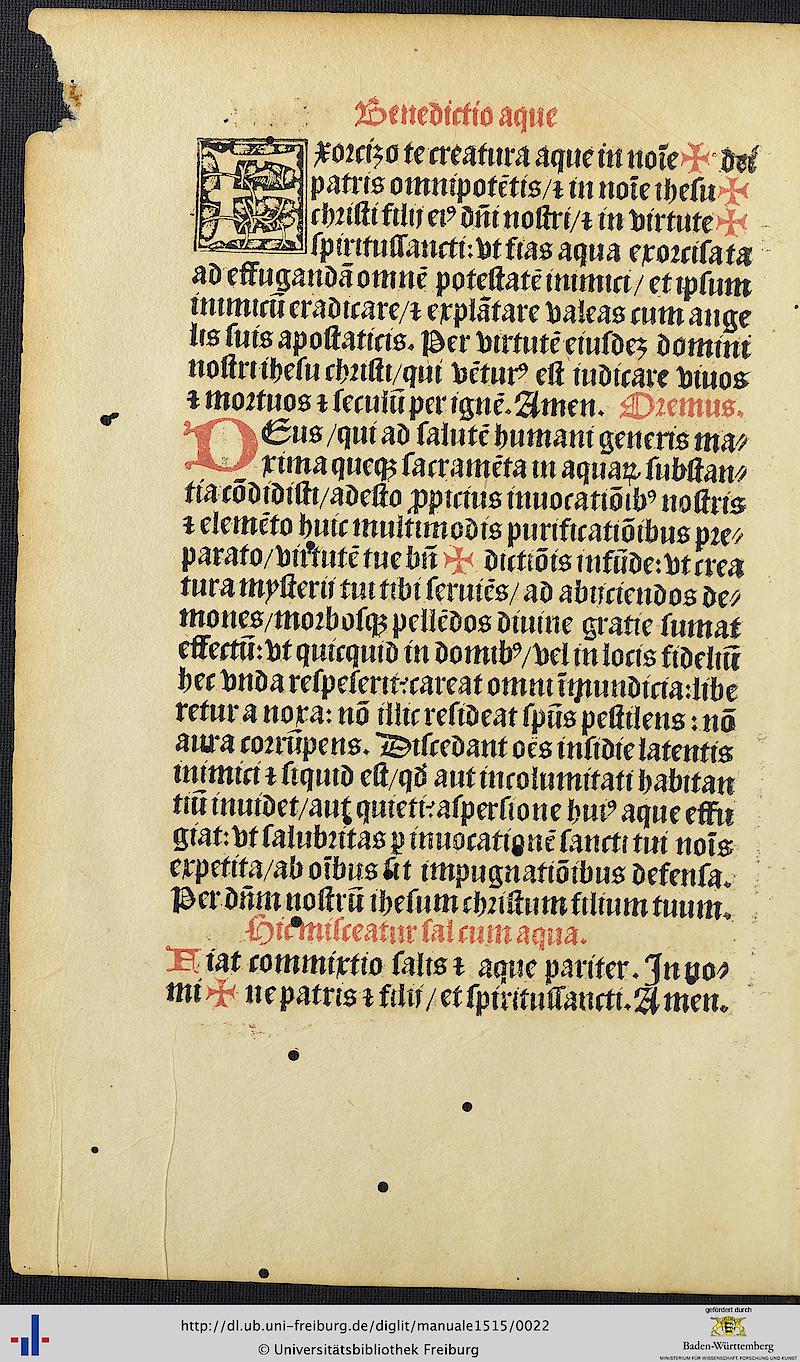 Benedictio aque
Exorcizo te creatura aque in noı̄e ✠ dei
patris omnipotētis/ ⁊ in noı̄e ihesu ✠
christi filij eiꝰ dn̄i nostri/ ⁊ in virtute ✠
spiritussancti: vt fias aqua exorcisata
ad effugandā omnē potestatē inimici/ et ipsum
inimicū eradicare/ ⁊ explātare valeas cum ange
lis suis apostaticis. Per virtutē eiusdeꝫ domini
nostri ihesu christi/ qui vēturꝰ est iudicare viuos
⁊ mortuos ⁊ seculū per ignē. Amen. Oremus.
DEus/ qui ad salutē humani generis ma⸗
xima queqꝫ sacramēta in aquaꝝ substan⸗
tia cōdidisti/ adesto ꝓpicius inuocatiōibꝰ nostris
⁊ elemēto huic multimodis purificatiōibus pre⸗
parato/ virtutē tue bn̄ ✠ dictiōis infūde: vt crea
tura mysterij tui tibi seruiēs/ ad abijciendos de⸗
mones/ morbosqꝫ pellēdos diuine gratie sumat
effectū: vt quicquid in domibꝰ/ vel in locis fideliū
hec vnda resperserit: careat omni īmundicia: libe
retur a noxa: nō illic resideat spūs pestilens: nō
aura corrūpens. Discedant oēs insidie latentis
inimici ⁊ siquid est/ qd̄ aut incolumitati habitan
tiū inuidet/ aut quieti: aspersione huiꝰ aque effu
giat: vt salubritas ꝑ inuocationē sancti tui noı̄s
expetita/ ab oı̄bus sit impugnatiōibus defensa.
Per dn̄m nostrū ihesum christum filium tuum.
Hic misceatur sal cum aqua.
Fiat commixtio salis ⁊ aque pariter. In no⸗
mi ✠ ne patris ⁊ filij/ et spiritussancti. Amen.
gefördert durch
http://dl.ub.uni-freiburg.de/diglit/manuale1515/0022
© Universitätsbibliothek Freiburg
Baden-Württemberg
MINISTERIUM FÜR WISSENSCHAFT, FORSCHUNG UND KUNST